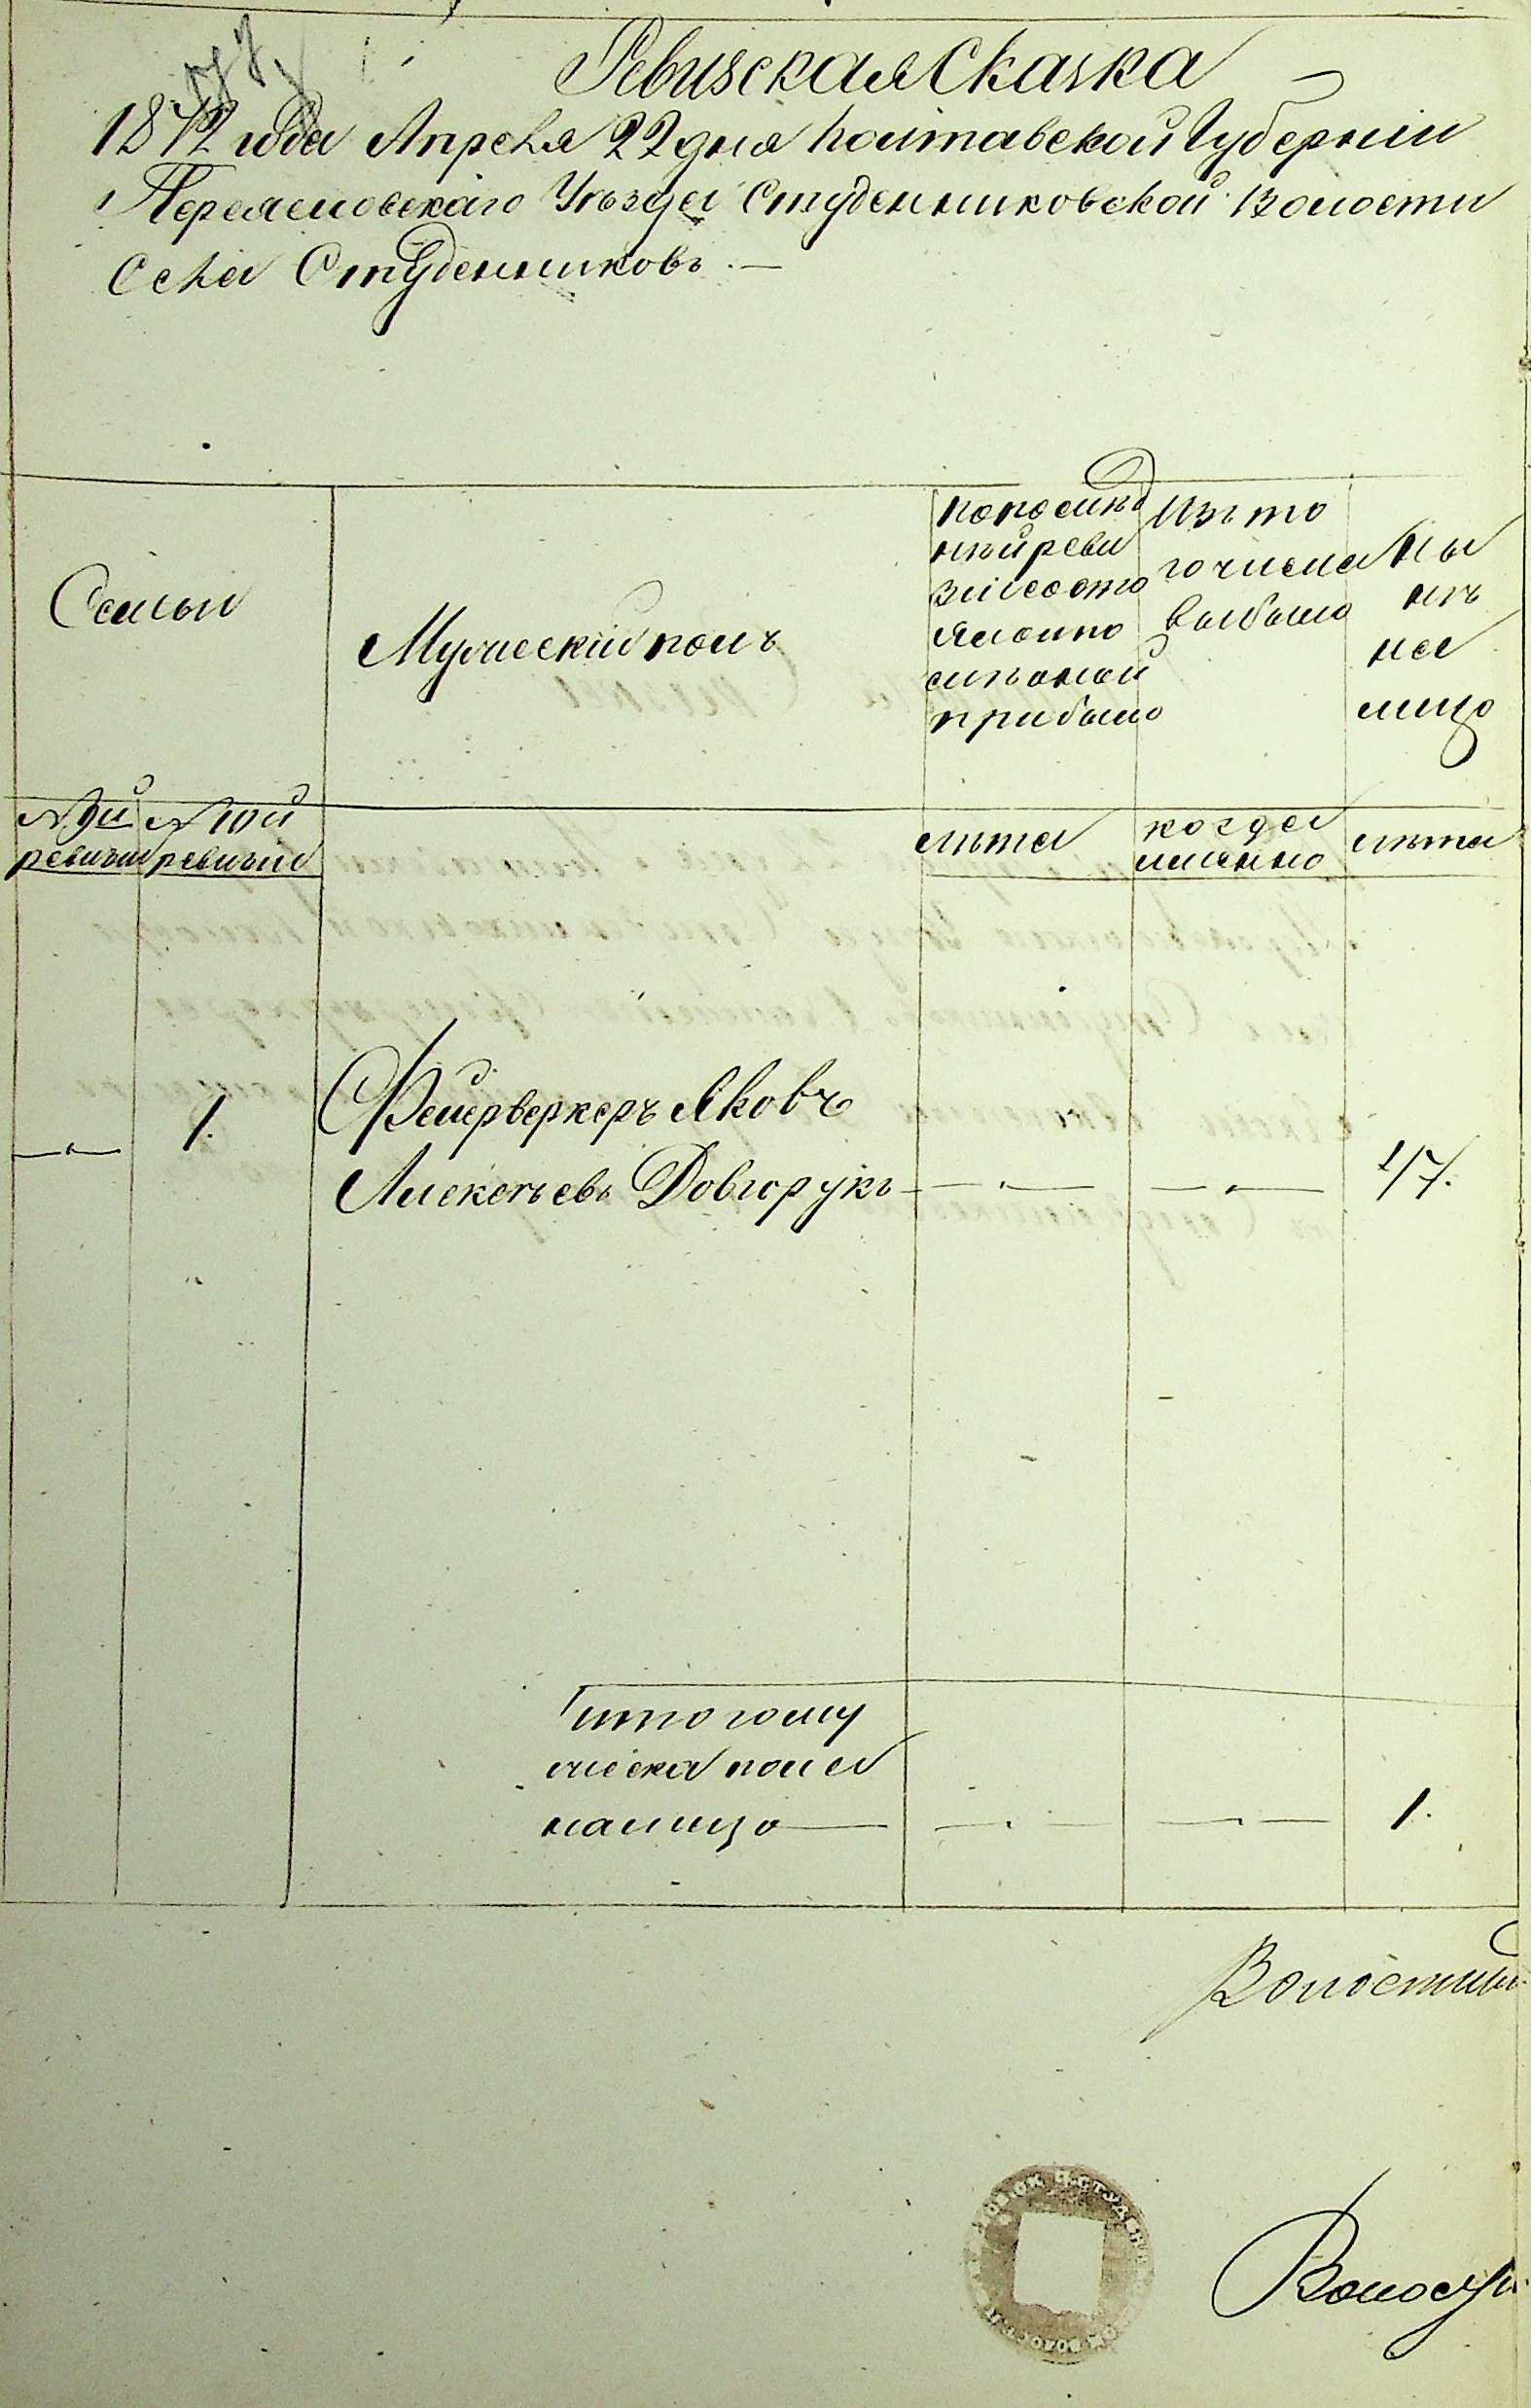 Ревизская Сказка
1872 года Апреля 22 дня Полтавской Губернiи
Переяславскаго Уѣзда Студенниковской Волости
Села Студенниковъ. —
Семьи
Мужескiй полъ
по послѣд
нѣй реви
зiи состо
яло и по
слѣ оной
прибыло
Изъ то
го числа
выбыло
Ны
нѣ
на
лицо
№ 9й
ревизiи
№ 10й
ревизiи
лѣта
когда
именно
лѣта
— 1. Фейерверкеръ Яковъ
Алексѣевъ Довгорукъ — — 47.
Итого му
жеска пола
налицо — — — 1.
Волостны